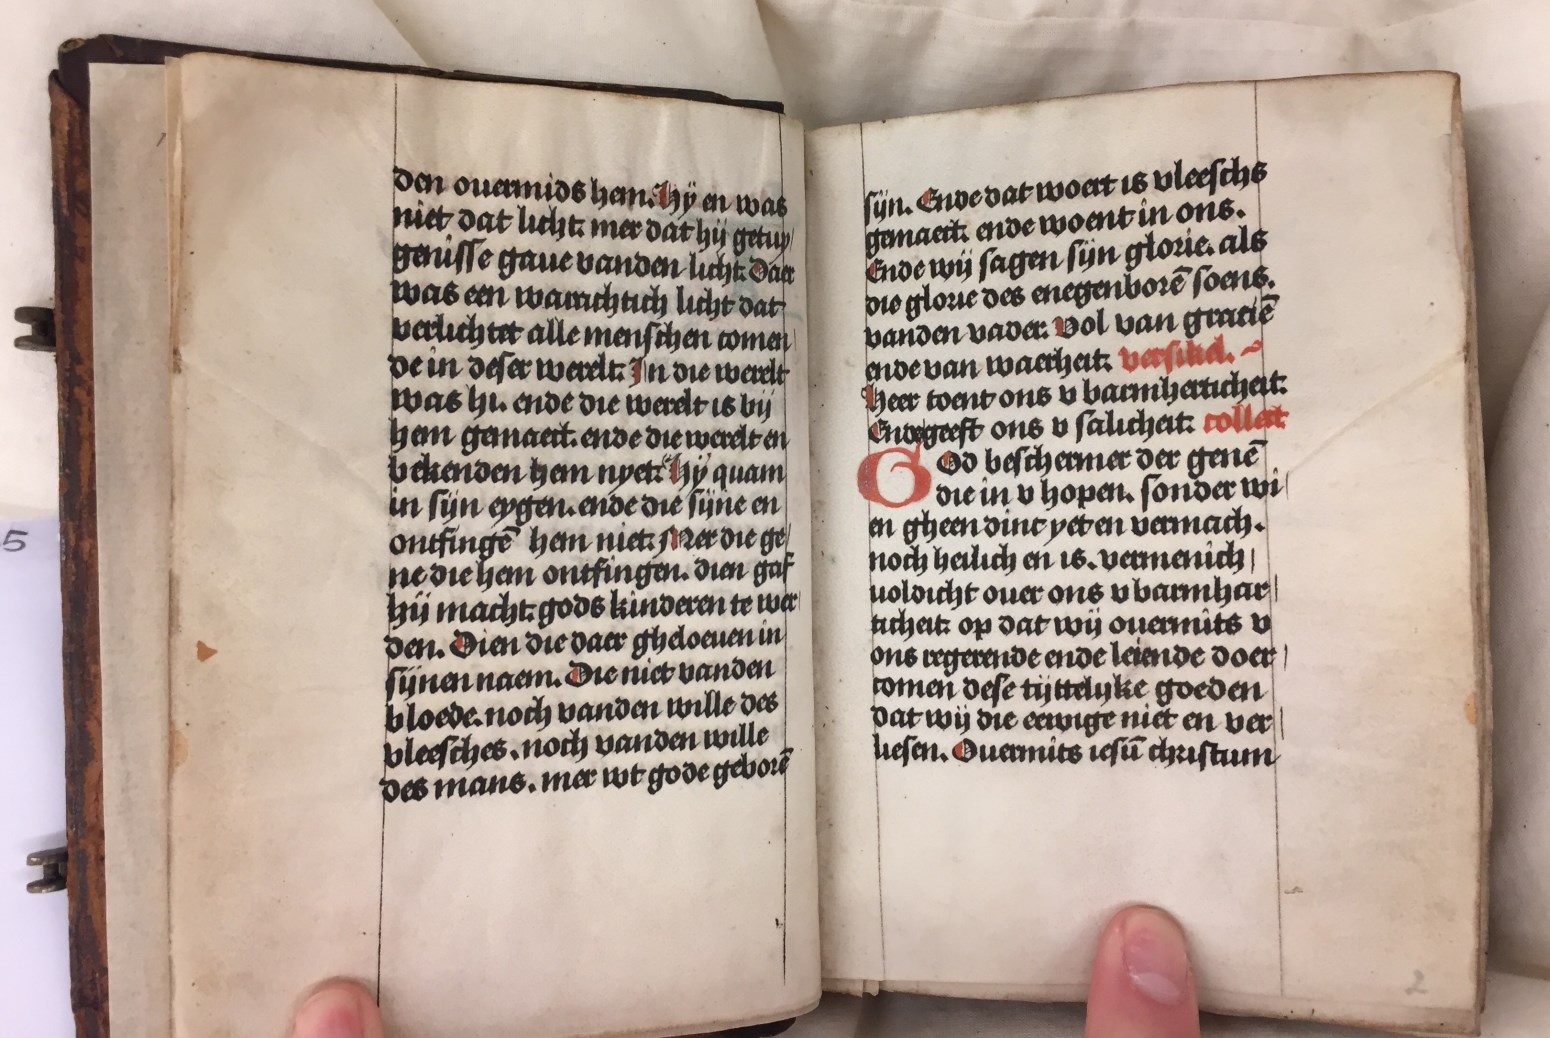 den ouermids hem. Hÿ en was
niet dat licht: mer dat hij getuy/
genisse gaue vanden licht: Daer
was een warachtich licht dat
verlichtet alle menschen comen/
de in deser werelt: In die werelt
was hi. ende die werelt is bij
hem gemaect. ende die werelt en
bekenden hem nyet: Hÿ quam
in sijn eygen. ende die sijne en
ontfingē hem niet: Mer die ge/
ne die hem ontfingen. dien gaf
hij macht: gods kinderen te wer/
den. Dien die daer gheloeuen in
sijnen naem. Die niet vanden
bloede. noch vanden wille des
vleesches. noch vanden wille
des mans. mer wt gode geborē
sijn. Ende dat woert is vleeschs
gemaect: ende woent in ons.
Ende wij sagen sijn glorie. als
die glorie des enegenborē soens.
vanden vader: Vol van gratiē
ende van waerheit: versikel.
Heer toent ons v barmherticheit:
Ende geeft ons v salicheit: collect
God beschermer der genē
die in v hopen. sonder wi/
en gheen dinc yet en vermach.
noch heilich en is. vermenich/
uoldicht ouer ons v barmhar/
ticheit: op dat wij ouermits v
ons regerende ende leiende doer/
comen dese tijttelijke goeden
dat wij die eewige niet en ver/
liesen. Ouermits iesū christum
2
5